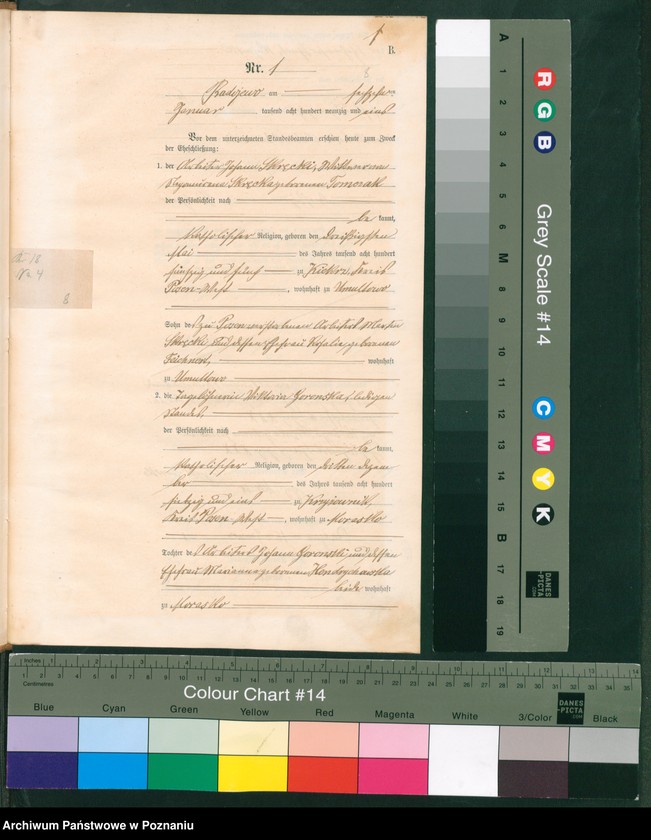 1
B.
Nr. 1
Radojewo am
Januar tausend acht hundert neunzig und eins
Vor dem unterzeichneten Standesbeamten erschien heute zum Zweck
der Eheschließung:
1. der Arbeiter Johann Skręcki, Wittwer von
geborenen Tomczak
der Persönlichkeit nach
be kannt,
katholischer Religion, geboren den dreißigsten
Mai des Jahres tausend acht hundert
fünfzig und fünf zu Kiekrz, Kreis
Posen-West, wohnhaft zu Umultowo
Sohn des zu Posen verstorbenen Arbeiters Martin
Skręcki und dessen Ehefrau Rosalie, geborenen
wohnhaft
zu Umultowo
2. die Tagelöhnerin Viktoria Goronska, ledigen
Standes,
der Persönlichkeit nach
be kannt,
katholischer Religion, geboren den
des Jahres tausend acht hundert
siebzig und eins zu
Kreis Posen West, wohnhaft zu Morasko
Tochter des Arbeiters Johann Goronski und dessen
Ehefrau Marianna geborenen
beide wohnhaft
zu Morasko
No 4
8
A 1 2 3 4 5 6 M 8 9 10 11 12 13 14 15 B 17 18 19
R G B
Grey Scale #14
C M Y K
DANES-PICTA.COM
Inches 1 2 3 4 5 6 7 8 9 10 11 12 13 14
Centimetres
Colour Chart #14
Blue Cyan Green Yellow Red Magenta White 3/Color Black
DANES-PICTA.COM
Archiwum Państwowe w Poznaniu